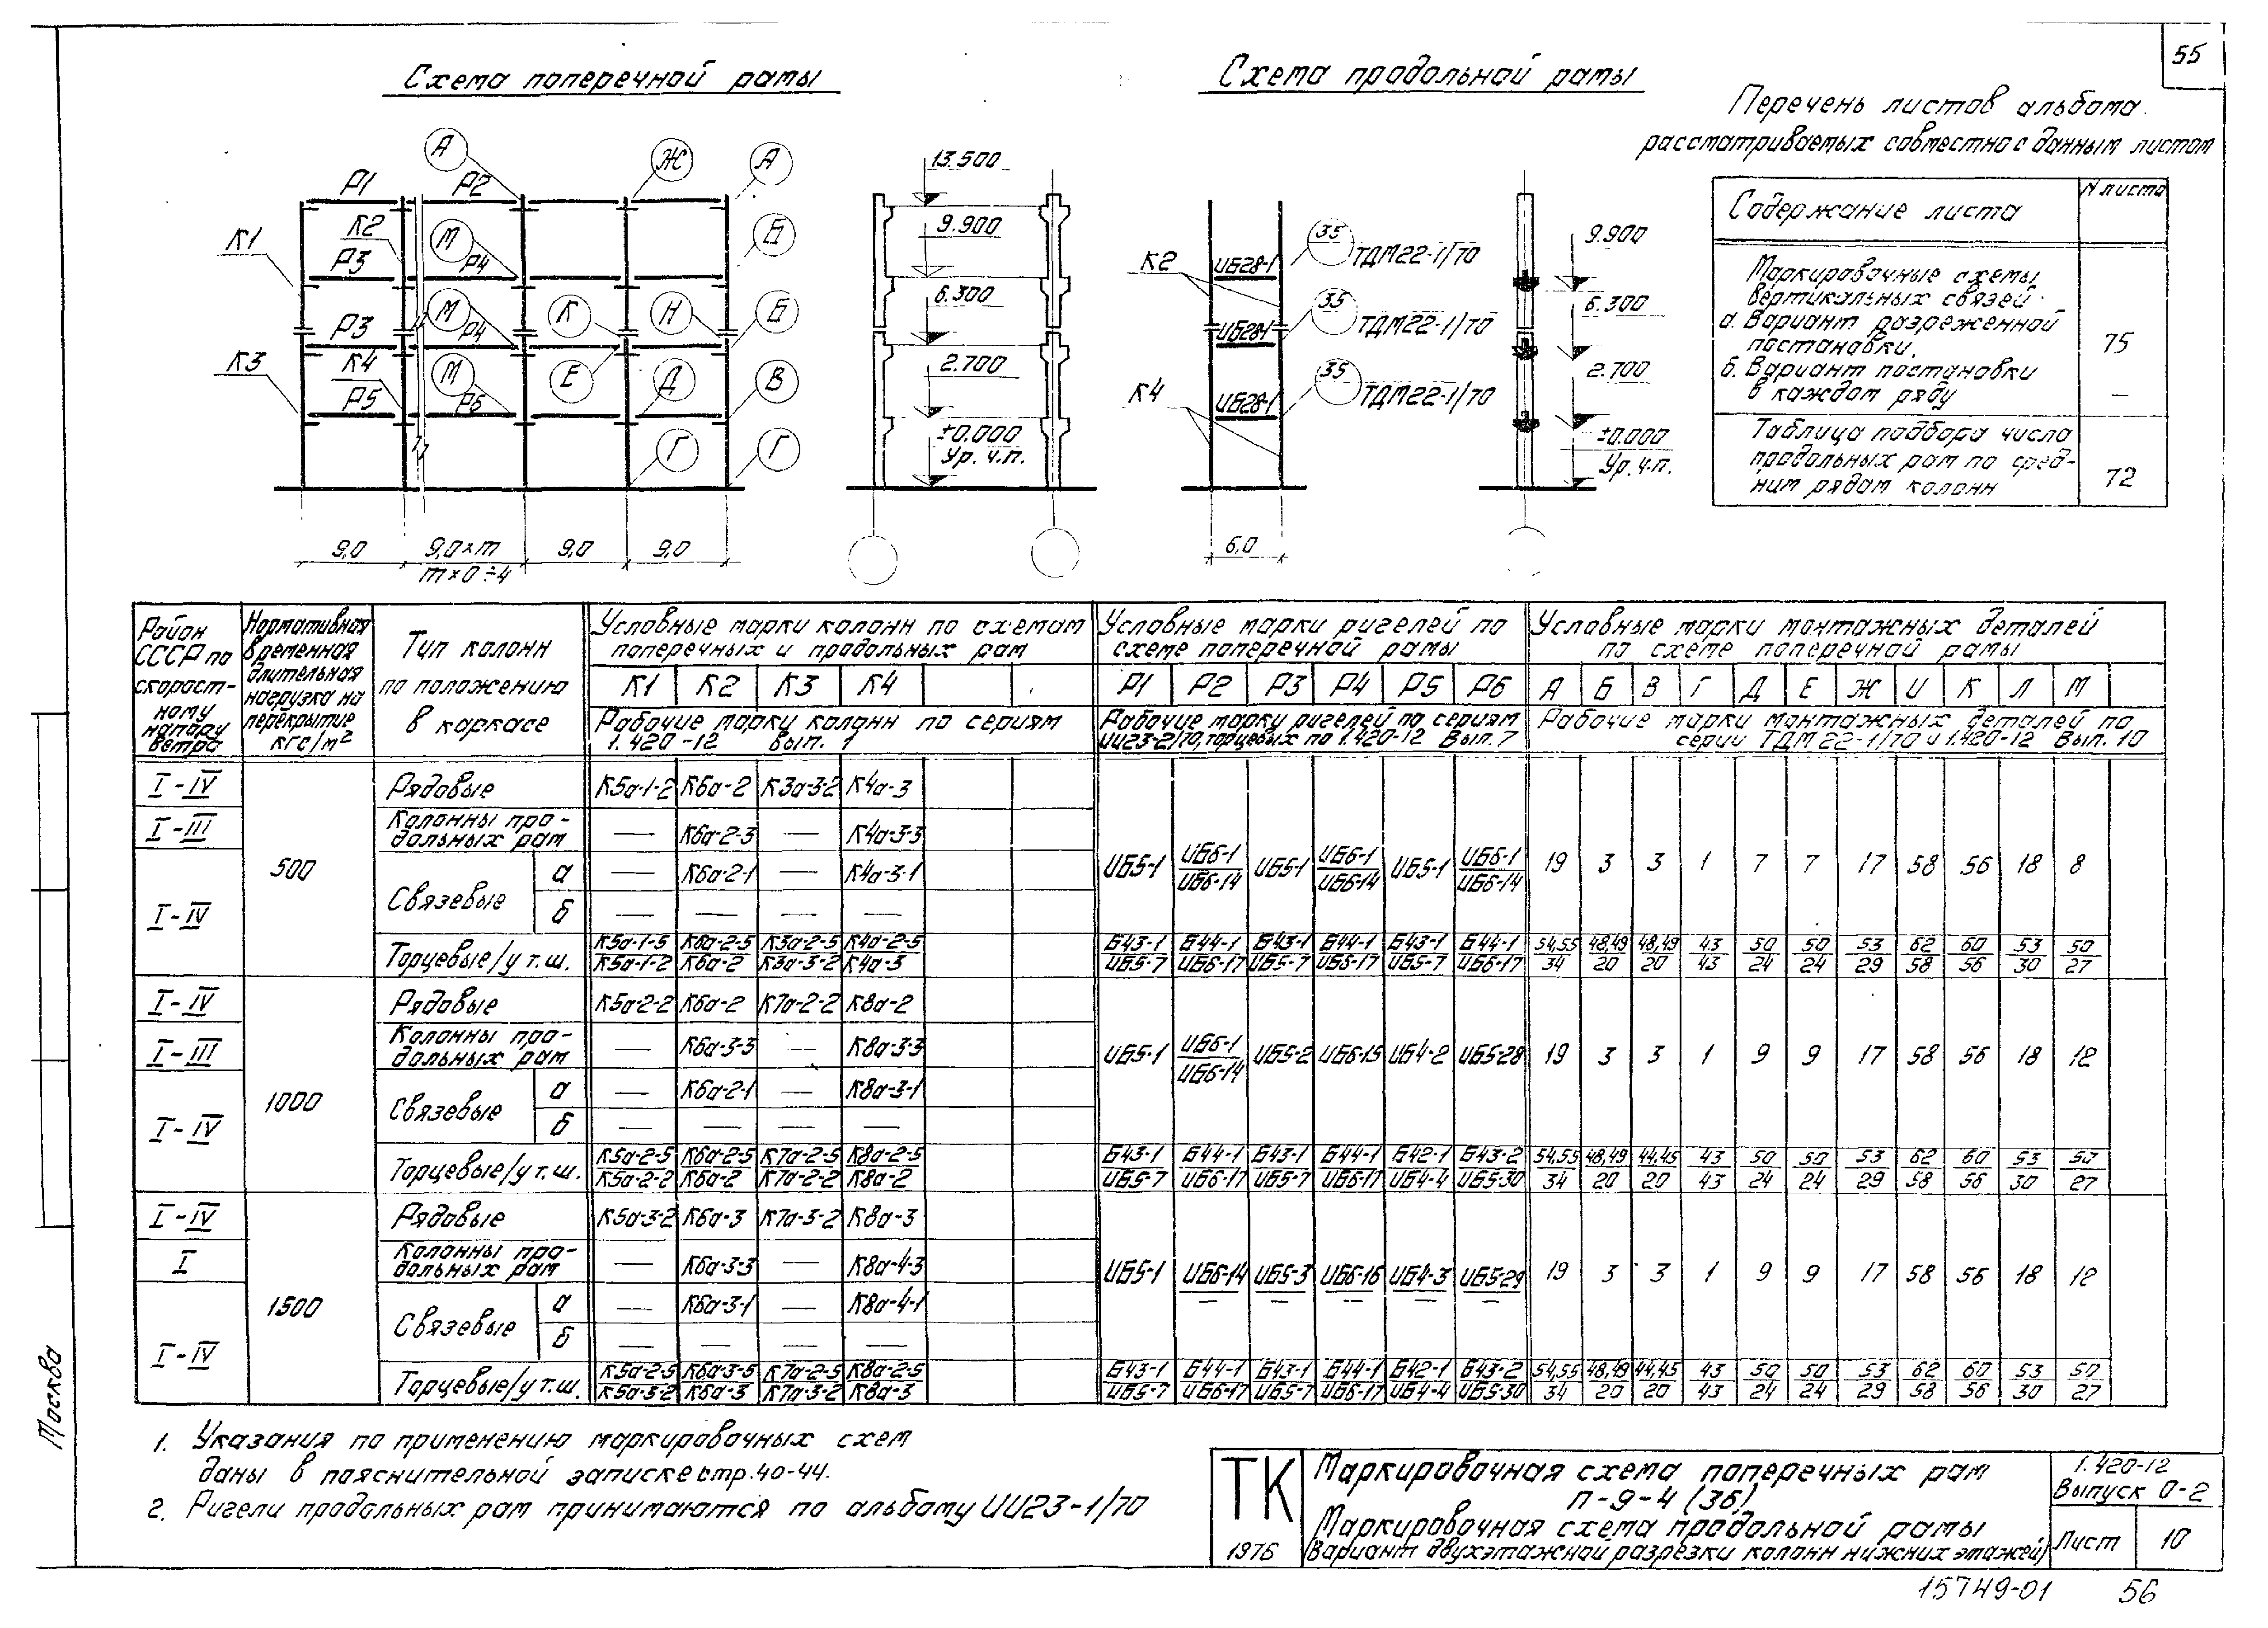 55
Схема поперечной рамы
Схема продольной рамы
Перечень листов альбома
рассматриваемых совместно с данным листом
Содержание листа
N листа
Маркировочные схемы
вертикальных связей
а. Вариант разреженной
постановки.
75
б. Вариант постановки
в каждом ряду
—
Таблица подбора числа
продольных рам по сред-
ним рядам колонн
72
А Ж А
Р1 Р2
К1 К2 М Б
Р3 Р4
М К Н Б
Р3 Р4
К3 К4 М Е Д В
Р5 Р6
Г Г
9,0 9,0×m 9,0 9,0
m×0÷4
13.500
9.900
6.300
2.700
±0.000
Ур. ч.п.
К2 ИБ28-1 35 ТДМ22-1/70
ИБ28-1 35 ТДМ22-1/70
К4 ИБ28-1 35 ТДМ22-1/70
6,0
9.900
6.300
2.700
±0.000
Ур. ч.п.
Район СССР по скорост-ному напору ветра
Нормативная временная длительная нагрузка на перекрытие кгс/м²
Тип колонн по положению в каркасе
Условные марки колонн по схемам
поперечных и продольных рам
К1 К2 К3 К4
Рабочие марки колонн по сериям
1.420-12 вып. 1
Условные марки ригелей по
схеме поперечной рамы
Р1 Р2 Р3 Р4 Р5 Р6
Рабочие марки ригелей по сериям
ИИ23-2/70, торцевых по 1.420-12 Вып. 7
Условные марки монтажных деталей
по схеме поперечной рамы
А Б В Г Д Е Ж И К Л М
Рабочие марки монтажных деталей по
серии ТДМ 22-1/70 и 1.420-12 Вып. 10
I-IV Рядовые К5а-1-2 К6а-2 К3а-3-2 К4а-3
I-III Колонны про-
дольных рам — К6а-2-3 — К4а-3-3
500
I-IV Связевые а — К6а-2-1 — К4а-3-1
б — — — —
ИБ5-1 ИБ6-1/ИБ6-14 ИБ5-1 ИБ6-1/ИБ6-14 ИБ5-1 ИБ6-1/ИБ6-14 19 3 3 1 7 7 17 58 56 18 8
Торцевые/у т.ш. К5а-1-5 К6а-2-5 К3а-2-5 К4а-2-5 Б43-1 Б44-1 Б43-1 Б44-1 Б43-1 Б44-1 54,55 48,49 48,49 43 50 50 53 62 60 53 50
К5а-1-2 К6а-2 К3а-3-2 К4а-3 ИБ5-7 ИБ6-17 ИБ5-7 ИБ6-17 ИБ5-7 ИБ6-17 34 20 20 43 24 24 29 58 56 30 27
I-IV Рядовые К5а-2-2 К6а-2 К7а-2-2 К8а-2
I-III Колонны про-
дольных рам — К6а-3-3 — К8а-3-3
1000
I-IV Связевые а — К6а-2-1 — К8а-3-1
б — — — —
ИБ5-1 ИБ6-1/ИБ6-14 ИБ5-2 ИБ6-15 ИБ4-2 ИБ5-28 19 3 3 1 9 9 17 58 56 18 12
Торцевые/у т.ш. К5а-2-5 К6а-2-5 К7а-2-5 К8а-2-5 Б43-1 Б44-1 Б43-1 Б44-1 Б42-1 Б43-2 54,55 48,49 44,45 43 50 50 53 62 60 53 50
К5а-2-2 К6а-2 К7а-2-2 К8а-2 ИБ5-7 ИБ6-17 ИБ5-7 ИБ6-17 ИБ4-4 ИБ5-30 34 20 20 43 24 24 29 58 56 30 27
I-IV Рядовые К5а-3-2 К6а-3 К7а-3-2 К8а-3
I Колонны про-
дольных рам — К6а-3-3 — К8а-4-3
1500
I-IV Связевые а — К6а-3-1 — К8а-4-1
б — — — —
ИБ5-1 ИБ6-14/— ИБ5-3/— ИБ6-16/— ИБ4-3/— ИБ5-29/— 19 3 3 1 9 9 17 58 56 18 12
Торцевые/у т.ш. К5а-2-5 К6а-3-5 К7а-2-5 К8а-2-5 Б43-1 Б44-1 Б43-1 Б44-1 Б42-1 Б43-2 54,55 48,49 44,45 43 50 50 53 62 60 53 50
К5а-3-2 К6а-3 К7а-3-2 К8а-3 ИБ5-7 ИБ6-17 ИБ5-7 ИБ6-17 ИБ4-4 ИБ5-30 34 20 20 43 24 24 29 58 56 30 27
Москва
1. Указания по применению маркировочных схем
даны в пояснительной записке стр. 40-44.
2. Ригели продольных рам принимаются по альбому ИИ23-1/70
ТК
1976
Маркировочная схема поперечных рам
п-9-4 (36)
Маркировочная схема продольной рамы
(Вариант двухэтажной разрезки колонн нижних этажей)
1.420-12
Выпуск 0-2
Лист 10
15749-01 56